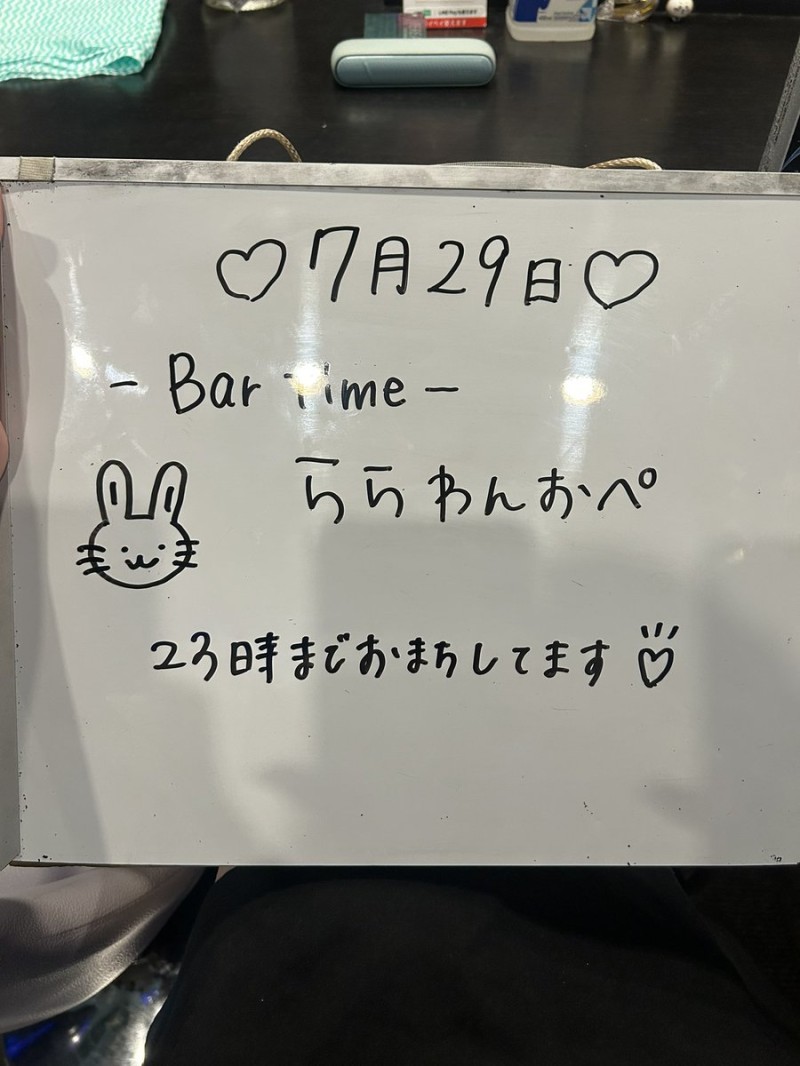 ♡7月29日♡
- Bar Time -
ららわんおぺ
23時までおまちしてます♡